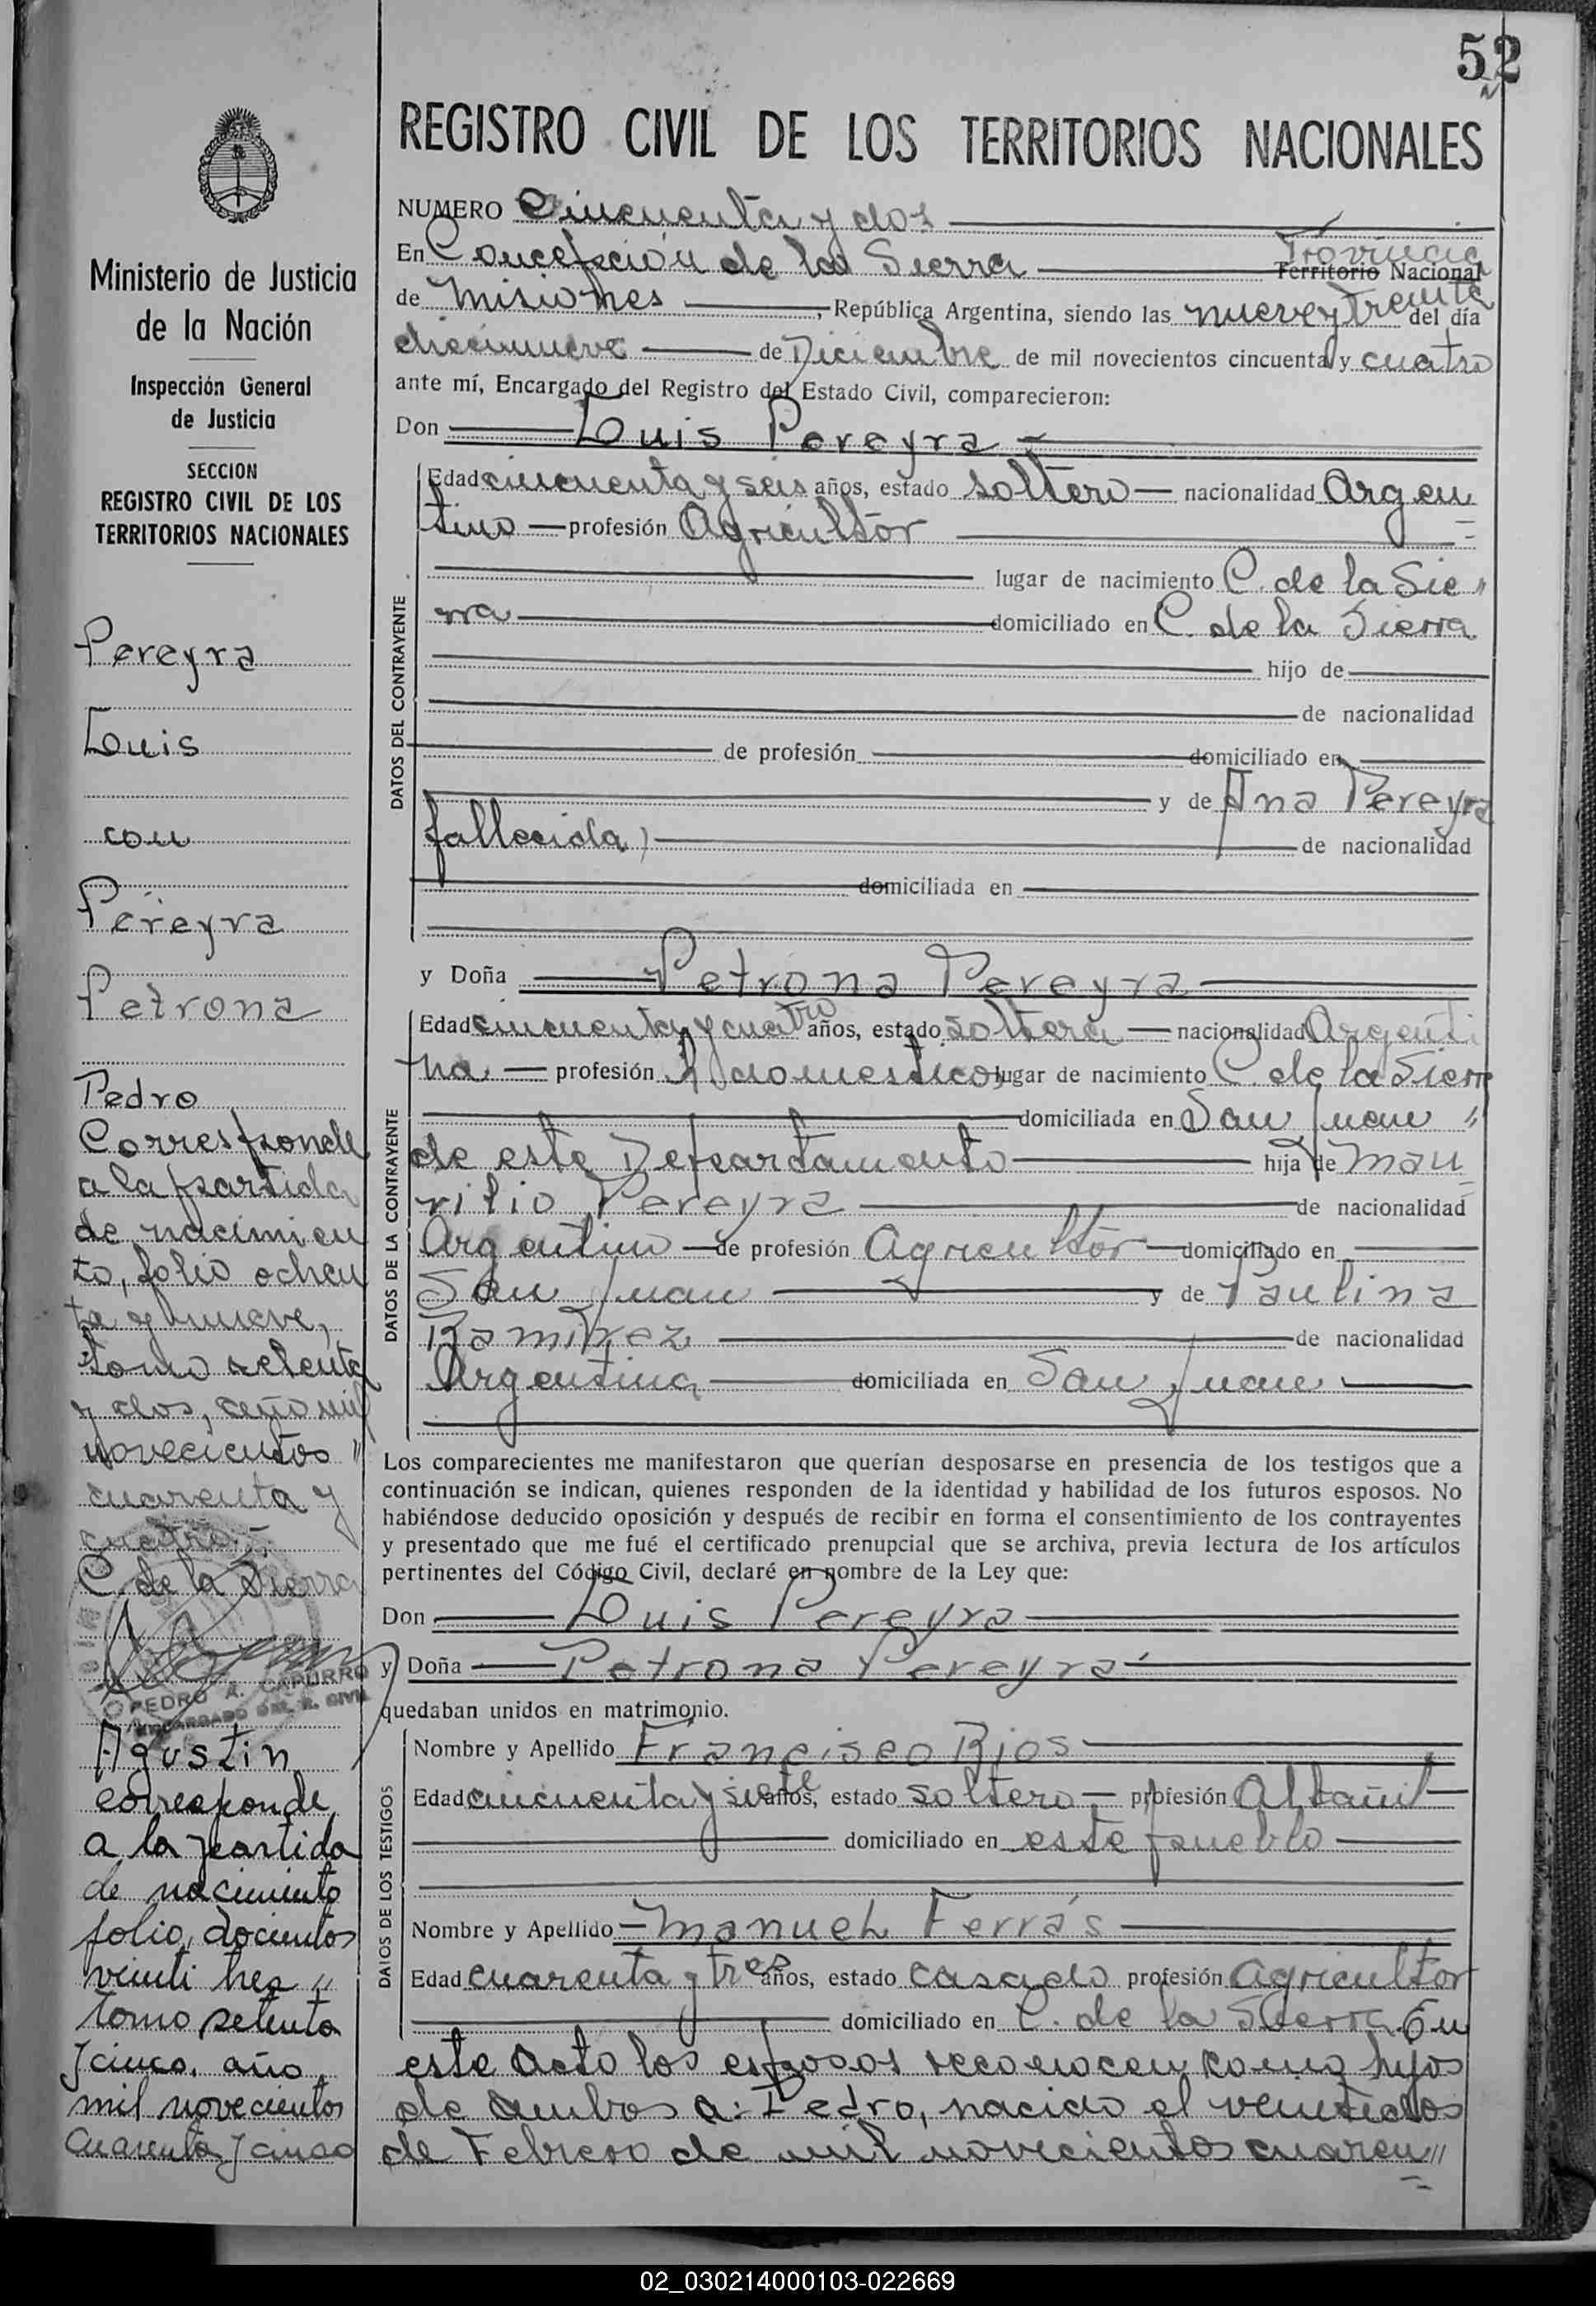 52
REGISTRO CIVIL DE LOS TERRITORIOS NACIONALES
Ministerio de Justicia
de la Nación
Inspección General
de Justicia
SECCION
REGISTRO CIVIL DE LOS
TERRITORIOS NACIONALES
Pereyra
Luis
con
Pereyra
Petrona
Pedro
Corresponde
a la partida
de nacimien
to, folio ochen
ta y nueve,
tomo setenta
y dos, año mil
novecientos "
cuarenta y
cuatro.-
C. de la Sierra
PEDRO A. CAPURRO
ENCARGADO DEL R. CIVIL
Agustin
corresponde
a la partida
de nacimiento
folio, docientos
veinti tres "
tomo setenta
y cinco. año
mil novecientos
cuarenta y cinco
NUMERO Cincuenta y dos
En Concepción de la Sierra Provincia
Territorio Nacional
de Misiones, República Argentina, siendo las nueve y treinta del día
diecinueve de Diciembre de mil novecientos cincuenta y cuatro
ante mí, Encargado del Registro del Estado Civil, comparecieron:
Don Luis Pereyra
DATOS DEL CONTRAYENTE
Edad cincuenta y seis años, estado soltero nacionalidad Argen
tino profesión Agricultor
lugar de nacimiento C. de la Sie "
rra domiciliado en C. de la Sierra
hijo de
de nacionalidad
de profesión domiciliado en
y de Ana Pereyra
fallecida) de nacionalidad
domiciliada en
y Doña Petrona Pereyra
DATOS DE LA CONTRAYENTE
Edad cincuenta y cuatro años, estado soltera nacionalidad Argenti
na profesión Q. domesticos lugar de nacimiento C. de la Sierra
domiciliada en San Juan "
de este Departamento hija de Mau
rilio Pereyra de nacionalidad
Argentino de profesión Agricultor domiciliado en
San Juan y de Paulina
Ramirez de nacionalidad
Argentina domiciliada en San Juan
Los comparecientes me manifestaron que querían desposarse en presencia de los testigos que a
continuación se indican, quienes responden de la identidad y habilidad de los futuros esposos. No
habiéndose deducido oposición y después de recibir en forma el consentimiento de los contrayentes
y presentado que me fué el certificado prenupcial que se archiva, previa lectura de los artículos
pertinentes del Código Civil, declaré en nombre de la Ley que:
Don Luis Pereyra
y Doña Petrona Pereyra
quedaban unidos en matrimonio.
DATOS DE LOS TESTIGOS
Nombre y Apellido Francisco Rios
Edad cincuenta y siete años, estado soltero profesión Albañil
domiciliado en este pueblo
Nombre y Apellido Manuel Ferrás
Edad cuarenta y tres años, estado casado profesión agricultor
domiciliado en C. de la Sierra. En
este acto los esposos reconocen como hijos
de ambos a: Pedro, nacido el veintidos
de Febrero de mil novecientos cuaren "
02_030214000103-022669